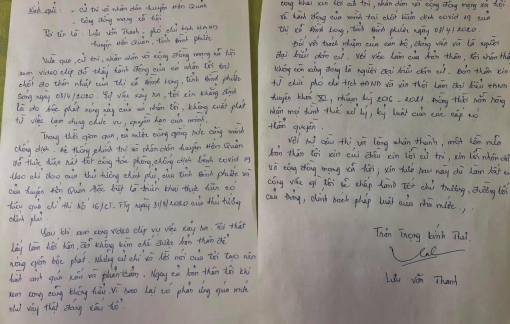 Kính gửi: - Cử tri và nhân dân huyện Hớn Quản
- Cộng đồng mạng xã hội
Tôi tên là Lưu Văn Thanh, phó chủ tịch HĐND
huyện Hớn Quản, tỉnh Bình Phước.
Vừa qua, cử tri, nhân dân và cộng đồng mạng xã hội
xem video clip đã thấy hành động của cá nhân tôi tại
chốt do thân nhiệt của xã Minh Long, tỉnh Bình Phước
sáng ngày 03/4/2020. Sự việc xảy ra, tôi xin khẳng định
là do bộc phát nóng nảy của cá nhân tôi, không xuất phát
từ việc lạm dụng chức vụ, quyền hạn của mình.
Trong thời gian qua, cả nước cùng gồng sức căng mình
chống dịch. Hệ thống chính trị và nhân dân huyện Hớn Quản
đã thực hiện rất tốt công tác phòng chống dịch bệnh covid 19
theo chỉ đạo của thủ tướng chính phủ, của tỉnh Bình Phước và
của huyện Hớn Quản. Đặc biệt là triển khai thực hiện có
hiệu quả chỉ thị số 16/CT-TTg ngày 31/3/2020 của thủ tướng
chính phủ.
Sau khi xem xong video clip vụ việc xảy ra. Tôi thật
lấy làm hối hận, đã không kìm chế được bản thân để
nóng giận bộc phát. Những cử chỉ và lời nói của tôi tạo nên
hình ảnh quá xấu và phản cảm. Ngay cả bản thân tôi khi
xem xong cũng không hiểu. Vì sao lại có phản ứng quá mức
như vậy thật đáng xấu hổ.
mong khẩu xin lỗi cử tri, nhân dân và cộng đồng mạng xã hội
về hành động của mình tại chốt kiểm dịch covid 19 của
xã Minh Long, tỉnh Bình Phước ngày 03/4/2020
Đối với trách nhiệm của cán bộ, đảng viên và là người
đại biểu dân cử. Với việc làm của bản thân, tôi nhận thấy
không còn xứng đáng là người đại biểu dân cử. Bản thân xin
từ chức phó chủ tịch HĐND và xin thôi làm đại biểu HĐND
huyện khóa XI, nhiệm kỳ 2016 - 2021. Đồng thời sẵn sàng
nhận mọi hình thức xử lý, kỷ luật của các cấp có
thẩm quyền.
Với sự cầu thị và lòng chân thành, một lần nữa
bản thân tôi xin cúi đầu xin lỗi cử tri, xin lỗi nhân dân
và cộng đồng mạng xã hội, xin hứa sau này dù làm bất cứ
công việc gì tôi sẽ chấp hành tốt chủ trương, đường lối
của Đảng, chính sách pháp luật của nhà nước.
Trân trọng kính chào!
Lưu Văn Thanh